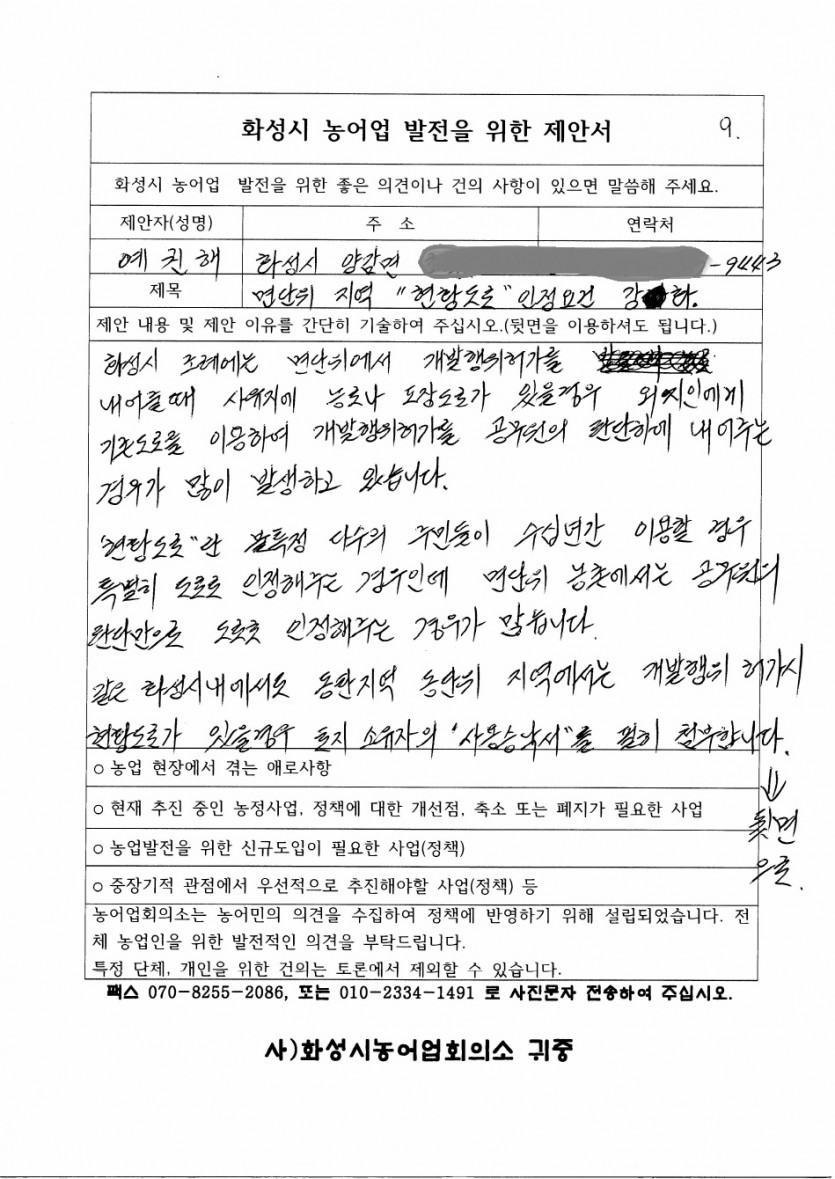 화성시 농어업 발전을 위한 제안서 9.
화성시 농어업 발전을 위한 좋은 의견이나 건의 사항이 있으면 말씀해 주세요.
제안자(성명) 주 소 연락처
예 해 화성시 양감면 -9443
제목 면단위 지역 "현황도로" 인정요건 강화.
제안 내용 및 제안 이유를 간단히 기술하여 주십시오.(뒷면을 이용하셔도 됩니다.)
화성시 조례에는 면단위에서 개발행위허가를
내어줄때 사유지에 농로나 포장도로가 있을경우 외지인에게
기존도로를 이용하여 개발행위허가를 공무원의 판단하에 내어주는
경우가 많이 발생하고 있습니다.
'현황도로"란 불특정 다수의 주민들이 수십년간 이용할 경우
특별히 도로로 인정해주는 경우인데 면단위 농촌에서는 공무원의
판단만으로 도로로 인정해주는 경우가 많습니다.
같은 화성시내에서도 동탄지역 동단위 지역에서는 개발행위 허가시
현황도로가 있을경우 토지 소유자의 '사용승낙서"를 필히 첨부합니다.
⇓
뒷면
으로.
○ 농업 현장에서 겪는 애로사항
○ 현재 추진 중인 농정사업, 정책에 대한 개선점, 축소 또는 폐지가 필요한 사업
○ 농업발전을 위한 신규도입이 필요한 사업(정책)
○ 중장기적 관점에서 우선적으로 추진해야할 사업(정책) 등
농어업회의소는 농어민의 의견을 수집하여 정책에 반영하기 위해 설립되었습니다. 전
체 농업인을 위한 발전적인 의견을 부탁드립니다.
특정 단체, 개인을 위한 건의는 토론에서 제외할 수 있습니다.
팩스 070-8255-2086, 또는 010-2334-1491 로 사진문자 전송하여 주십시오.
사)화성시농어업회의소 귀중